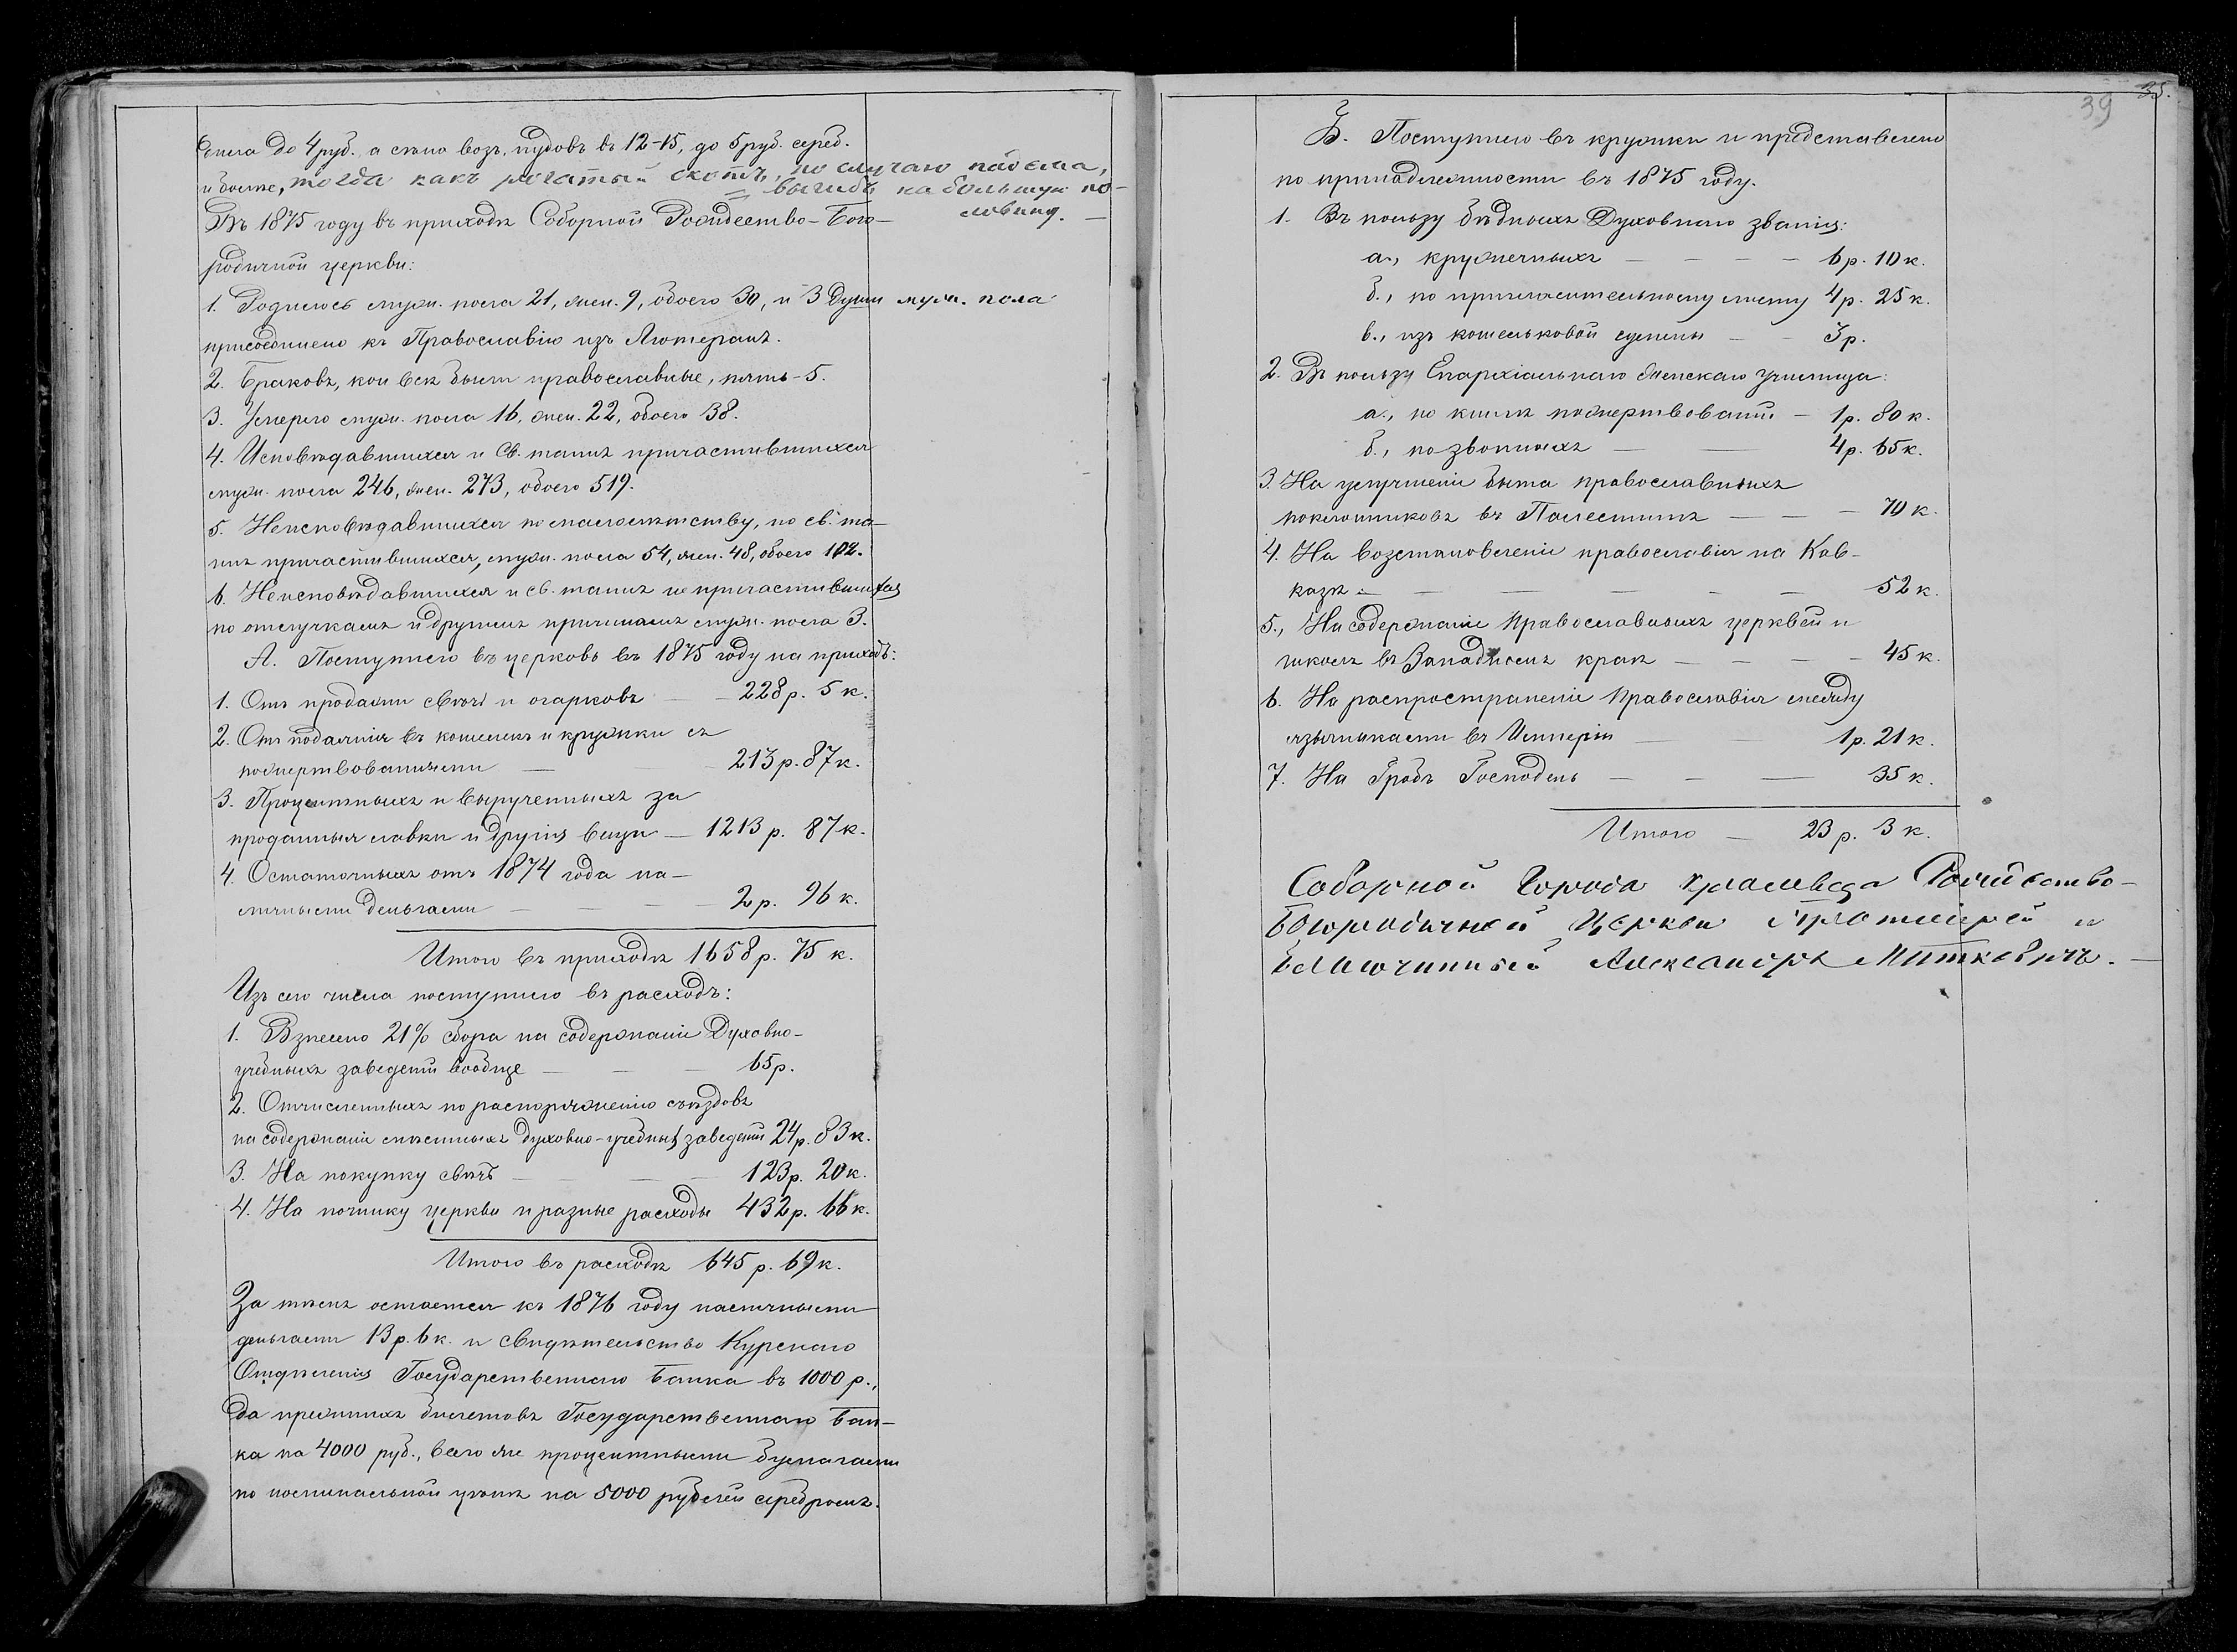 до 4 руб. а сѣно возъ, пудовъ въ 12-15, до 5 руб. сереб.
и болѣе, тогда какъ рогатый скотъ, по случаю падежа,
выгибъ на большую по-
ловину. —
Въ 1875 году въ приходѣ Соборной Рождество-Бого-
родичной церкви:
1. Родилось муж. пола 21, жен. 9, обоего 30, и 3 души муж. пола
присоединено къ Православію изъ Лютеранъ.
2. Браковъ, кои всѣ были православные, пять-5.
3. Умерло муж. пола 16, жен. 22, обоего 38.
4. Исповѣдавшихся и Св. таинъ причастившихся
муж. пола 246, жен. 273, обоего 519.
5. Неисповѣдавшихся по малолѣтству, но св. та-
инъ причастившихся, муж. пола 54, жен. 48, обоего 102.
6. Неисповѣдавшихся и св. таинъ не причастившихся
по отлучкамъ и другимъ причинамъ муж. пола 3.
А. Поступило въ церковь въ 1875 году на приходъ:
1. Отъ продажи свѣчъ и огарковъ — 228 р. 5 к.
2. Отъ подаянія въ кошелекъ и кружки съ
пожертвованными — 213 р. 87 к.
3. Процентныхъ и вырученныхъ за
проданныя лавки и другія вещи — 1213 р. 87 к.
4. Остаточныхъ отъ 1874 года на-
личными деньгами — — — 2 р. 96 к.
Итого въ приходѣ 1658 р. 75 к.
Изъ сего числа поступило въ расходъ:
1. Взнесено 21% сбора на содержаніе Духовно-
учебныхъ заведеній вообще — — — 65 р.
2. Отчисленныхъ по распоряженію съѣздовъ
на содержаніе мѣстныхъ духовно-учебныхъ заведеній 24 р. 83 к.
3. На покупку свѣчъ — — — 123 р. 20 к.
4. На починку церкви и разные расходы 432 р. 66 к.
Итого въ расходѣ 645 р. 69 к.
За тѣмъ остается къ 1876 году наличными
деньгами 13 р. 6 к. и свидѣтельство Курскаго
Отдѣленія Государственнаго Банка въ 1000 р.,
да прежнихъ билетовъ Государственнаго Бан-
ка на 4000 руб., всего же процентными бумагами
по номинальной цѣнѣ на 5000 рублей серебромъ.
39 35.
Б. Поступило въ кружки и представлено
по принадлежности въ 1875 году.
1. Въ пользу бѣдныхъ Духовнаго званія:
а., кружечныхъ — — — — 6 р. 10 к.
б., по пригласительному листу 4 р. 25 к.
в., изъ кошельковой суммы — — 3 р.
2. Въ пользу Епархіальнаго Женскаго училища:
а., по книгѣ пожертвованій — 1 р. 80 к.
б., позвонныхъ — — 4 р. 65 к.
3. На улучшеніе быта православныхъ
поклонниковъ въ Палестинѣ — — — 70 к.
4. На возстановленіе православія на Кав-
казѣ — — — — — — 52 к.
5., На содержаніе Православныхъ церквей и
школъ въ Западномъ краѣ — — — — 45 к.
6. На распространеніе Православія между
язычниками въ Имперіи — 1 р. 21 к.
7. На Гробъ Господень — — — 35 к.
Итого — 23 р. 3 к.
Соборной города Кролевца Рождество-
Богородичной Церкви Протоіерей и
Благочинный Александръ Миткевичъ. —